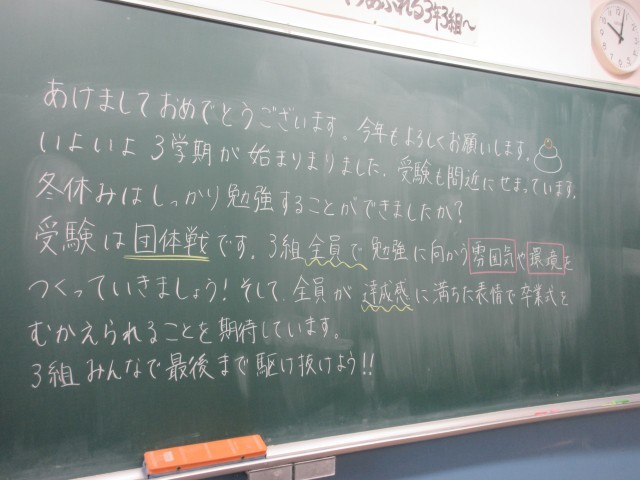 あふれる3年3組〜
あけましておめでとうございます。今年もよろしくお願いします。
いよいよ3学期が始まりまりました。受験も間近にせまっています。
冬休みはしっかり勉強することができましたか?
受験は団体戦です。3組全員で勉強に向かう雰囲気や環境を
つくっていきましょう!そして、全員が達成感に満ちた表情で卒業式を
むかえられることを期待しています。
3組みんなで最後まで駆け抜けよう!!